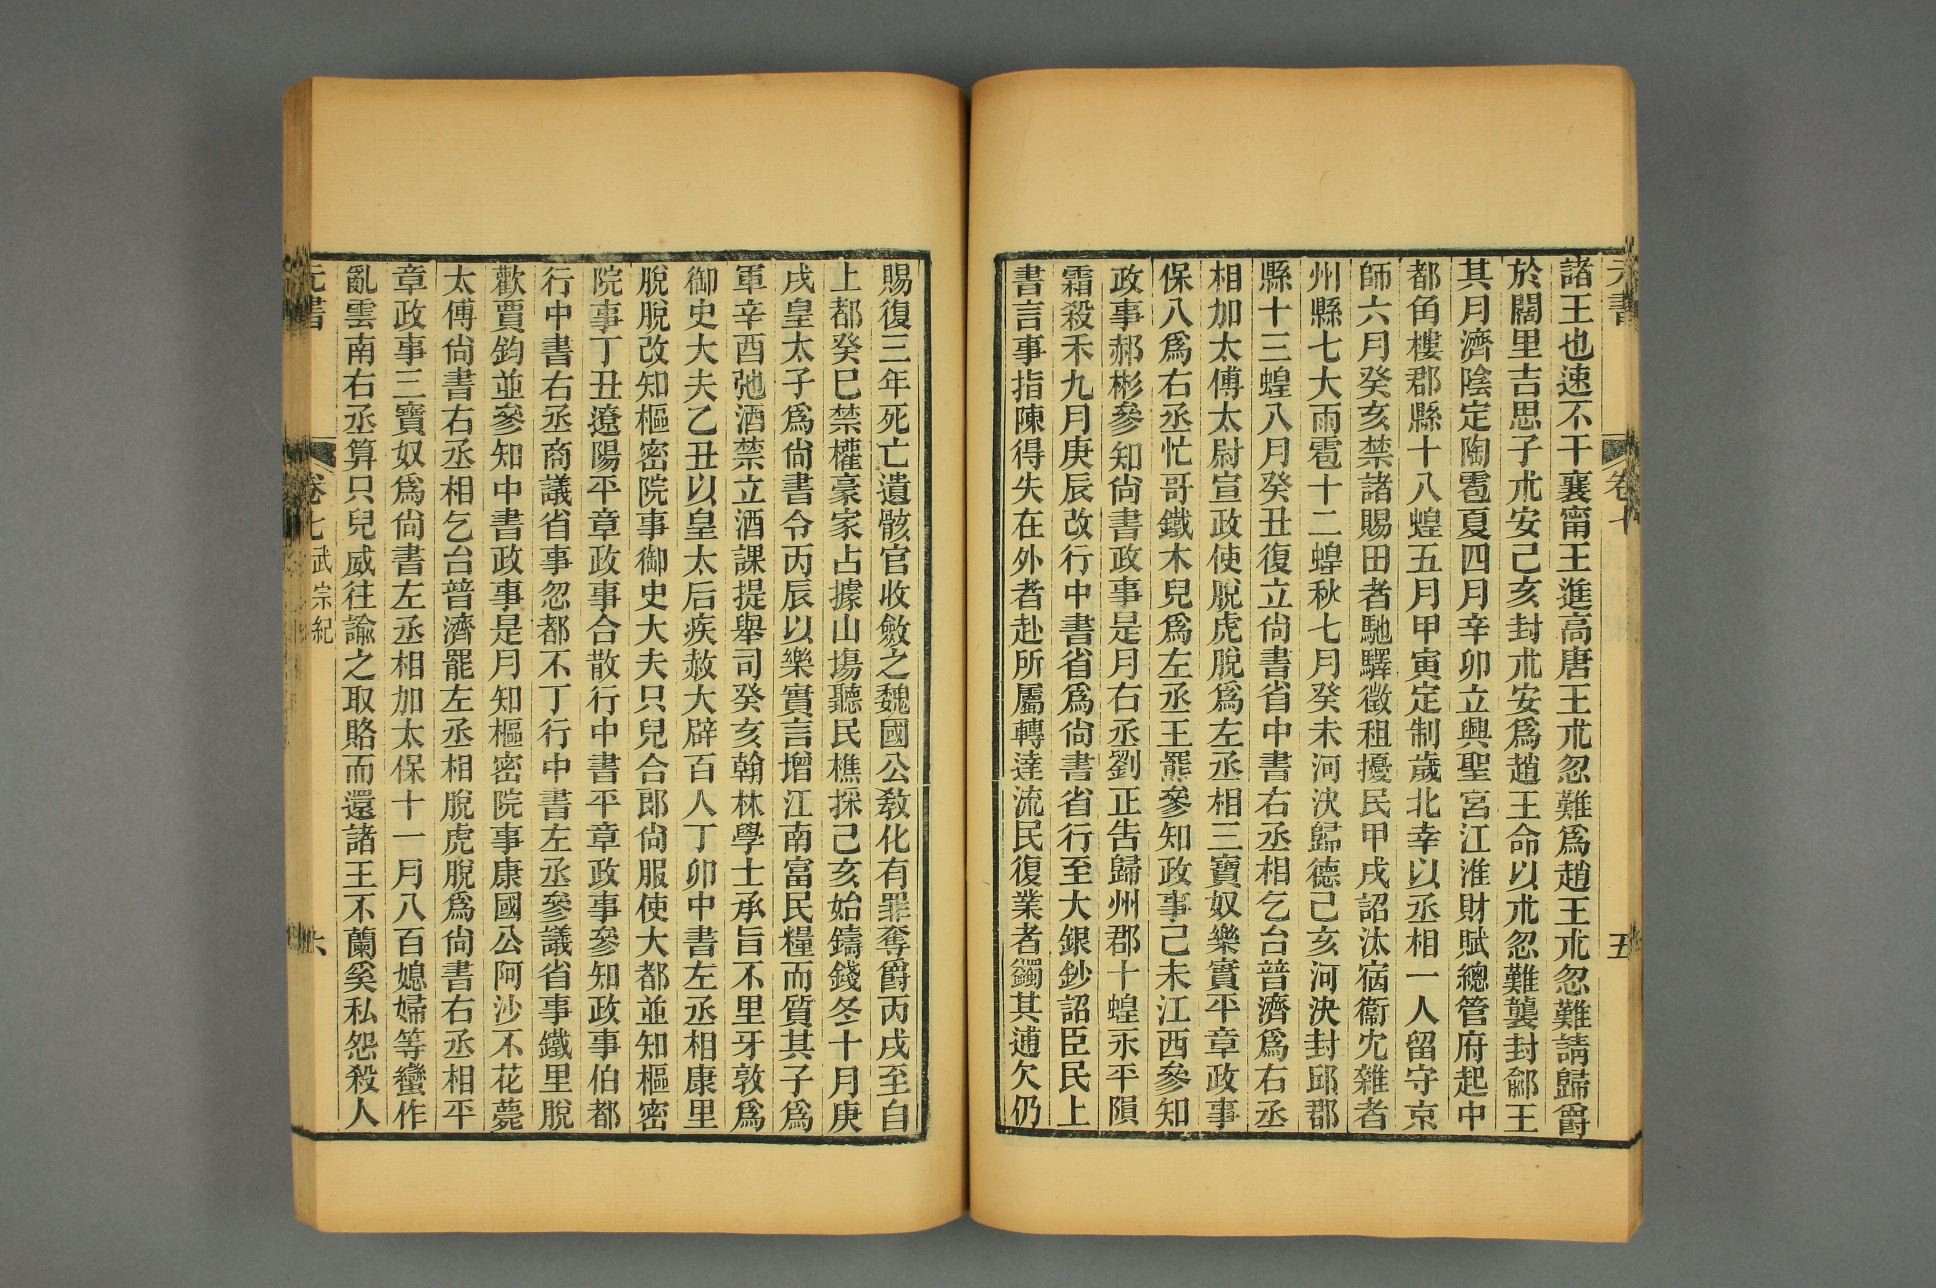 元書
卷七
五
諸王也速不干襄甯王進高唐王朮忽難爲趙王朮忽難請歸爵
於闊里吉思子朮安己亥封朮安爲趙王命以朮忽難襲封鄃王
其月濟陰定陶雹夏四月辛卯立興聖宮江淮財賦總管府起中
都角樓郡縣十八蝗五月甲寅定制歲北幸以丞相一人留守京
師六月癸亥禁諸賜田者馳驛徵租擾民甲戌詔汰宿衞宂雜者
州縣七大雨雹十二蝗秋七月癸未河決歸德己亥河決封邱郡
縣十三蝗八月癸丑復立尙書省中書右丞相乞台普濟爲右丞
相加太傅太尉宣政使脫虎脫爲左丞相三寶奴樂實平章政事
保八爲右丞忙哥鐵木兒爲左丞王羆參知政事己未江西參知
政事郝彬參知尙書政事是月右丞劉正告歸州郡十蝗永平隕
霜殺禾九月庚辰改行中書省爲尙書省行至大銀鈔詔臣民上
書言事指陳得失在外者赴所屬轉達流民復業者蠲其逋欠仍
賜復三年死亡遺骸官收斂之魏國公敎化有罪奪爵丙戌至自
上都癸巳禁權豪家占據山場聽民樵採己亥始鑄錢冬十月庚
戌皇太子爲尙書令丙辰以樂實言增江南富民糧而質其子爲
軍辛酉弛酒禁立酒課提舉司癸亥翰林學士承旨不里牙敦爲
御史大夫乙丑以皇太后疾赦大辟百人丁卯中書左丞相康里
脫脫改知樞密院事御史大夫只兒合郎尙服使大都並知樞密
院事丁丑遼陽平章政事合散行中書平章政事參知政事伯都
行中書右丞商議省事忽都不丁行中書左丞參議省事鐵里脫
歡賈鈞並參知中書政事是月知樞密院事康國公阿沙不花薨
太傅尙書右丞相乞台普濟罷左丞相脫虎脫爲尙書右丞相平
章政事三寶奴爲尙書左丞相加太保十一月八百媳婦等蠻作
亂雲南右丞算只兒威往諭之取賂而還諸王不蘭奚私怨殺人
元書
卷七
武宗紀
六